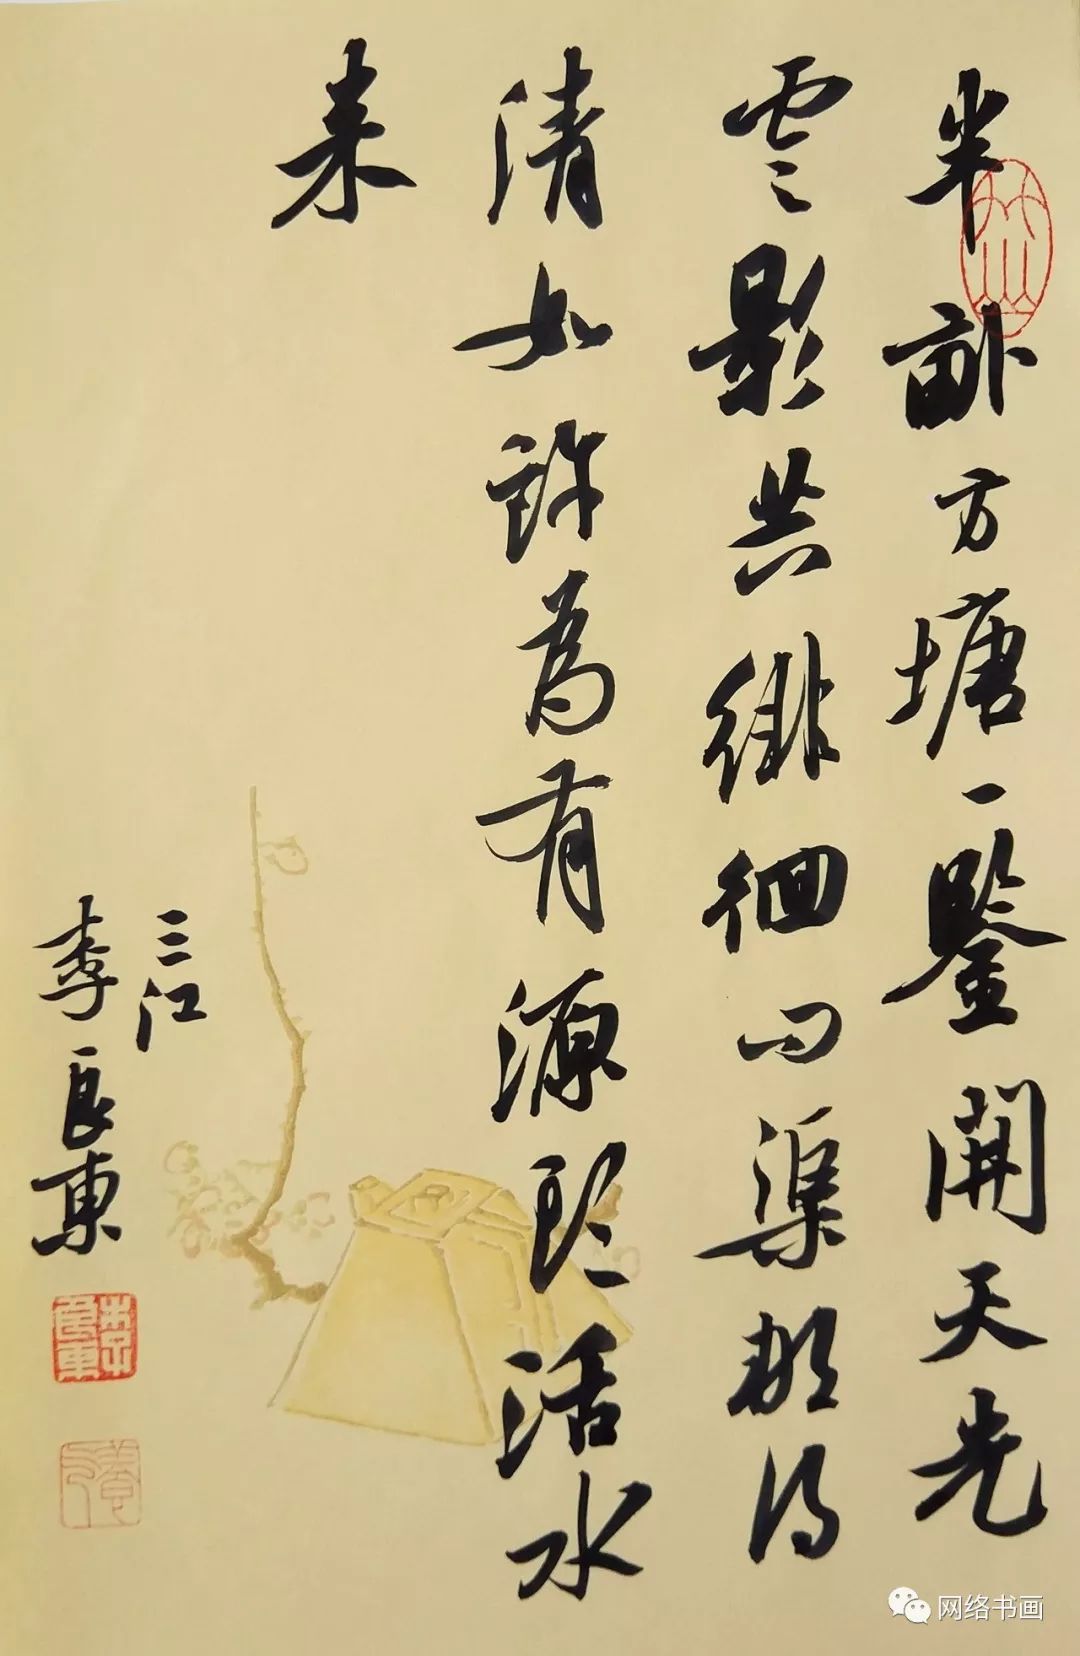 半畝方塘一鑒開天光
雲影共徘徊問渠那得
清如許為有源頭活水
来
三江
李良東
网络书画